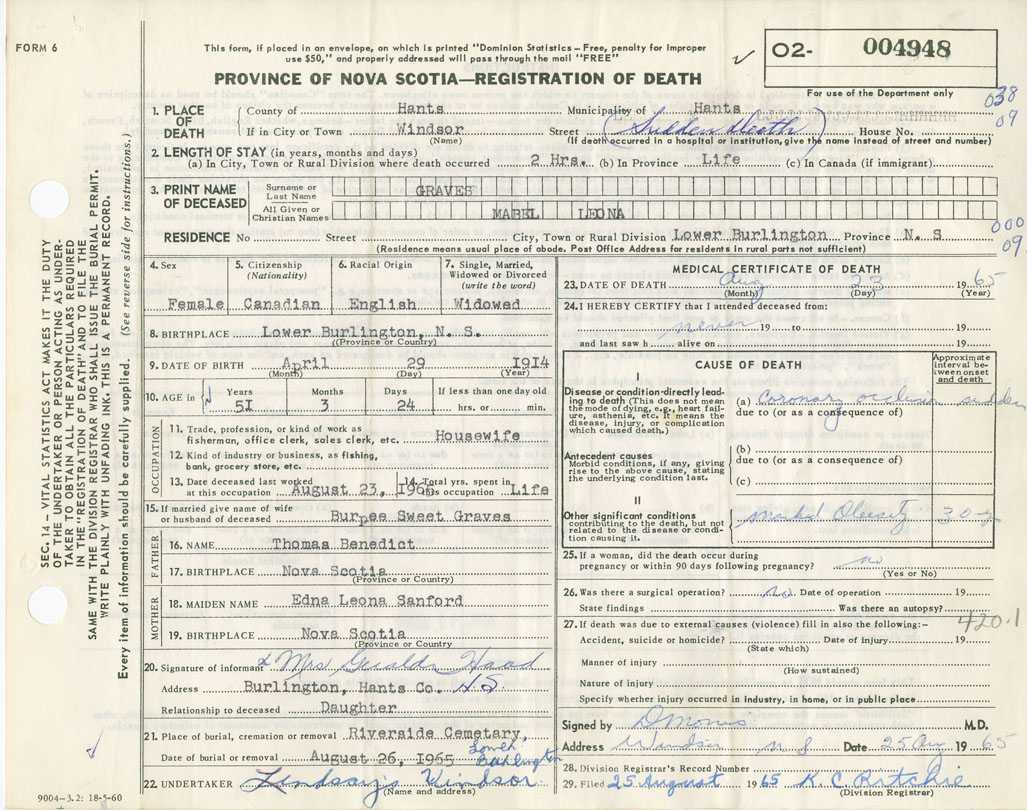 FORM 6
This form, if placed in an envelope, on which is printed "Dominion Statistics – Free, penalty for improper
use $50," and properly addressed will pass through the mail "FREE"
02- 004948
For use of the Department only
PROVINCE OF NOVA SCOTIA—REGISTRATION OF DEATH
038
09
1. PLACE OF DEATH
County of Hants Municipality of Hants
If in City or Town Windsor Street (Sudden Death) House No.
(Name) (If death occurred in a hospital or institution, give the name instead of street and number)
2. LENGTH OF STAY (in years, months and days)
(a) In City, Town or Rural Division where death occurred 2 Hrs. (b) In Province Life (c) In Canada (if immigrant)
3. PRINT NAME OF DECEASED
Surname or Last Name GRAVES
All Given or Christian Names MABEL LEONA
000
09
RESIDENCE No Street City, Town or Rural Division Lower Burlington Province N. S
(Residence means usual place of abode. Post Office Address for residents in rural parts not sufficient)
4. Sex Female
5. Citizenship (Nationality) Canadian
6. Racial Origin English
7. Single, Married, Widowed or Divorced (write the word) Widowed
8. BIRTHPLACE Lower Burlington, N. S.
(Province or Country)
9. DATE OF BIRTH April 29 1914
(Month) (Day) (Year)
10. AGE in Years Months Days If less than one day old
51 3 24 hrs. or min.
OCCUPATION
11. Trade, profession, or kind of work as
fisherman, office clerk, sales clerk, etc. Housewife
12. Kind of industry or business, as fishing,
bank, grocery store, etc.
13. Date deceased last worked
at this occupation August 23, 1965
14. Total yrs. spent in
this occupation Life
15. If married give name of wife
or husband of deceased Burpee Sweet Graves
FATHER
16. NAME Thomas Benedict
17. BIRTHPLACE Nova Scotia
(Province or Country)
MOTHER
18. MAIDEN NAME Edna Leona Sanford
19. BIRTHPLACE Nova Scotia
(Province or Country)
20. Signature of informant x Mrs,
Address Burlington, Hants Co. NS
Relationship to deceased Daughter
21. Place of burial, cremation or removal Riverside Cemetary,
Lower Burlington
Date of burial or removal August 26, 1965
22. UNDERTAKER Lindsay's Windsor
(Name and address)
MEDICAL CERTIFICATE OF DEATH
23. DATE OF DEATH Aug 23 1965
(Month) (Day) (Year)
24. I HEREBY CERTIFY that I attended deceased from:
never 19 to 19
and last saw h alive on 19
CAUSE OF DEATH
Approximate interval between onset and death
I
Disease or condition directly leading to death (This does not mean the mode of dying, e.g., heart failure, asthenia, etc. It means the disease, injury, or complication which caused death.)
(a) Coronary occlusion sudden
due to (or as a consequence of)
Antecedent causes
Morbid conditions, if any, giving rise to the above cause, stating the underlying condition last.
(b)
due to (or as a consequence of)
(c)
II
Other significant conditions
contributing to the death, but not related to the disease or condition causing it.
Obesity 30
25. If a woman, did the death occur during
pregnancy or within 90 days following pregnancy? no
(Yes or No)
26. Was there a surgical operation? no Date of operation 19
State findings Was there an autopsy?
27. If death was due to external causes (violence) fill in also the following:– 420.1
Accident, suicide or homicide? Date of injury 19
(State which)
Manner of injury
(How sustained)
Nature of injury
Specify whether injury occurred in industry, in home, or in public place
Signed by M.D.
Address Windsor N S Date 25 Aug 1965
28. Division Registrar's Record Number
29. Filed 25 August 1965 K. C. Ritchie
(Division Registrar)
SEC. 14 – VITAL STATISTICS ACT MAKES IT THE DUTY
OF THE UNDERTAKER OR PERSON ACTING AS UNDER-
TAKER TO OBTAIN ALL THE PARTICULARS REQUIRED
IN THE "REGISTRATION OF DEATH" AND TO FILE THE
SAME WITH THE DIVISION REGISTRAR WHO SHALL ISSUE THE BURIAL PERMIT.
WRITE PLAINLY WITH UNFADING INK. THIS IS A PERMANENT RECORD.
Every item of information should be carefully supplied. (See reverse side for instructions.)
9004–3.2: 18-5-60